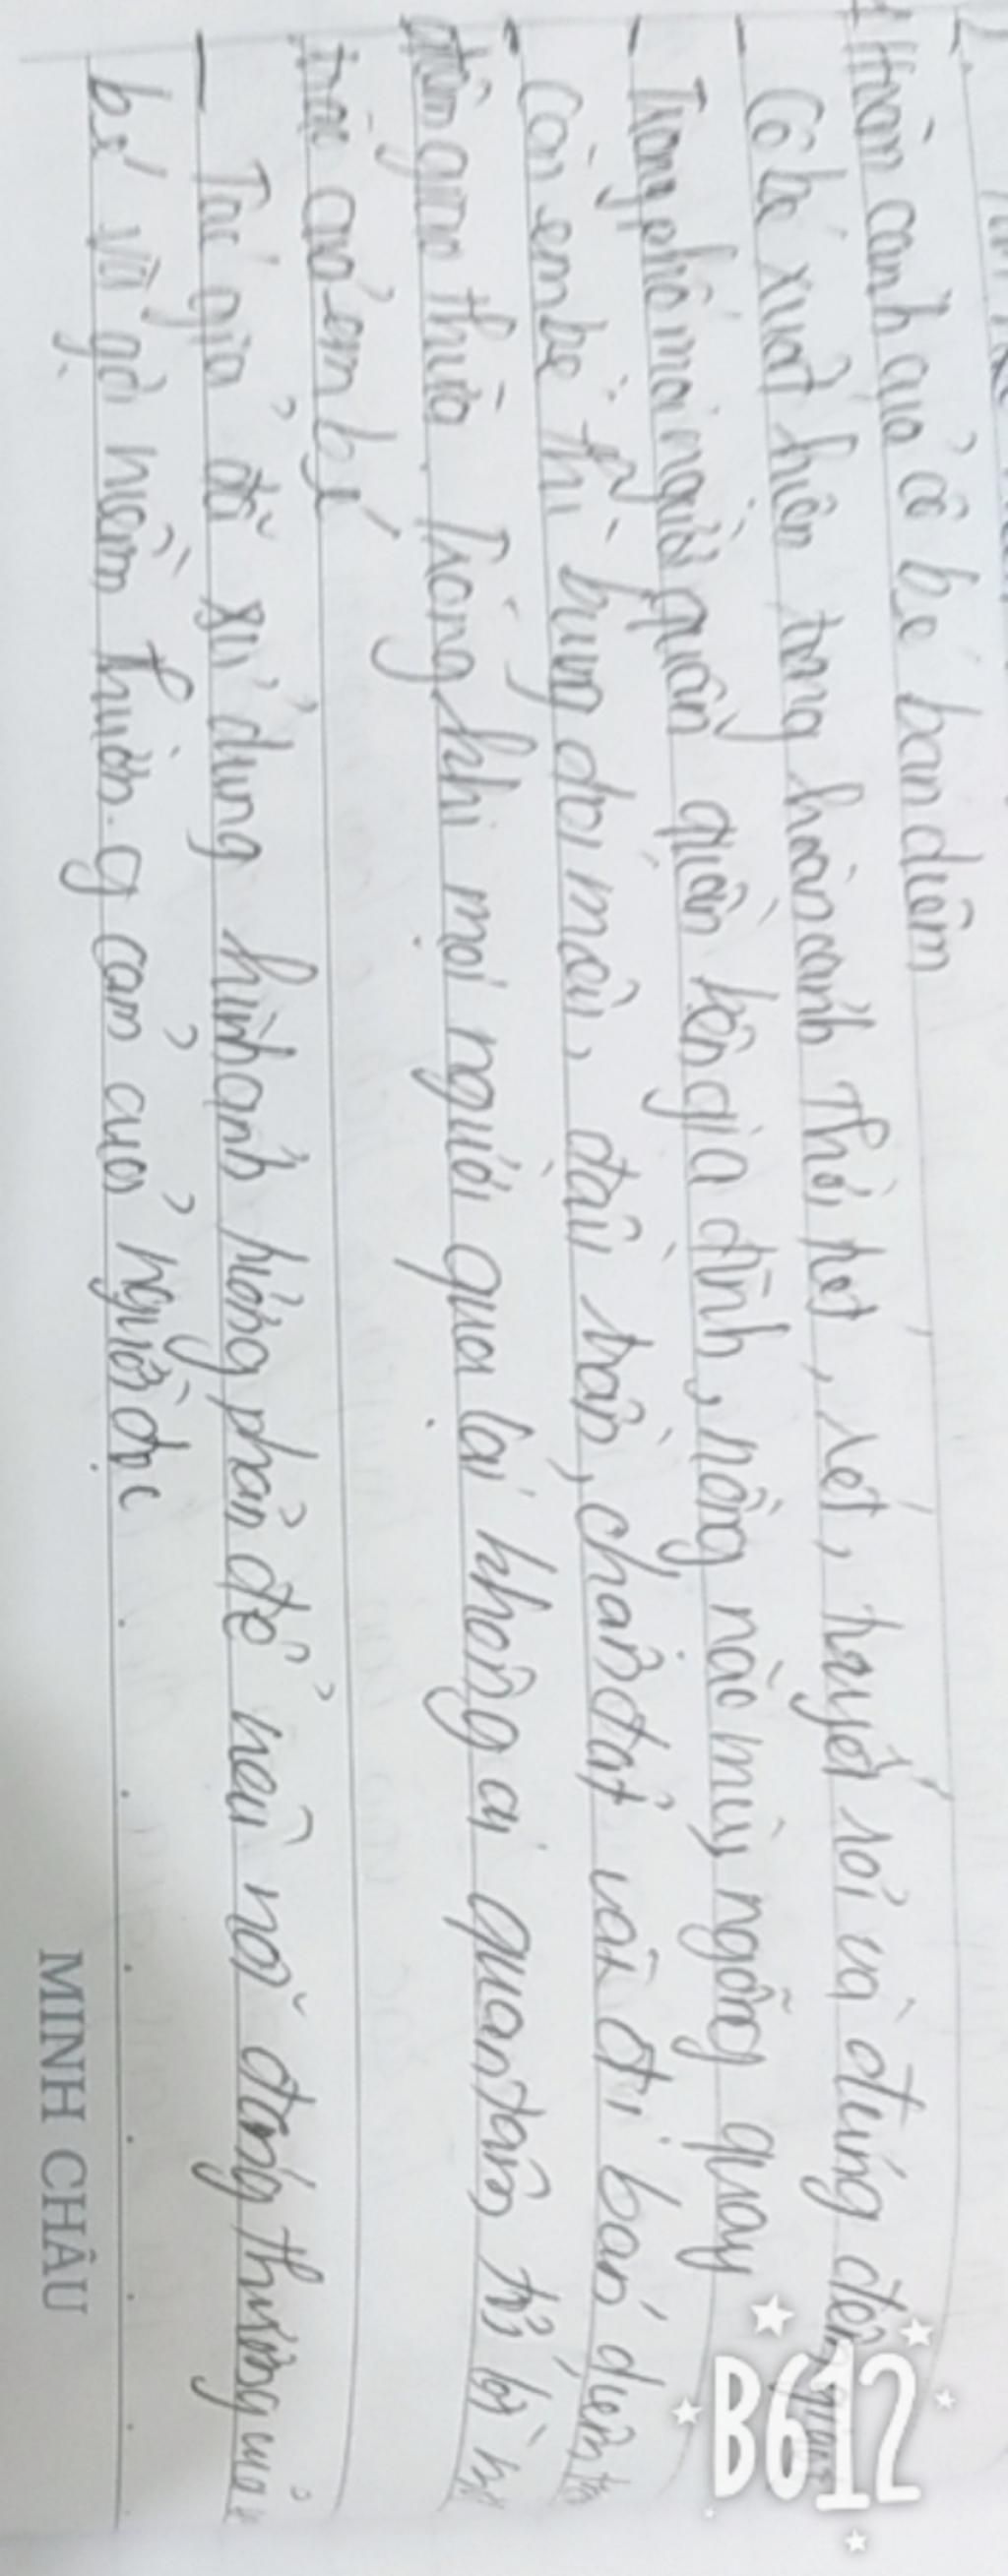 2.
Hoàn cảnh của cô bé bán diêm
- Cô bé xuất hiện trong hoàn cảnh Thời tiết, rét, tuyết rơi và đúng đêm
- Trong phố mọi người quây quần bên gia đình, nồng nặc mùi ngỗng quay
- Còn em bé thì bụng đói mồ côi, đầu trần, chân đất vẫn đi bán diêm
đêm giao thừa. Trong khi mọi người qua lại không ai quan tâm tới lời
của em bé
- Tác giả đã sử dụng hình ảnh tương phản để nêu nỗi đáng thương của
bé và gợi niềm thương cảm của người đọc
MINH CHÂU
B612